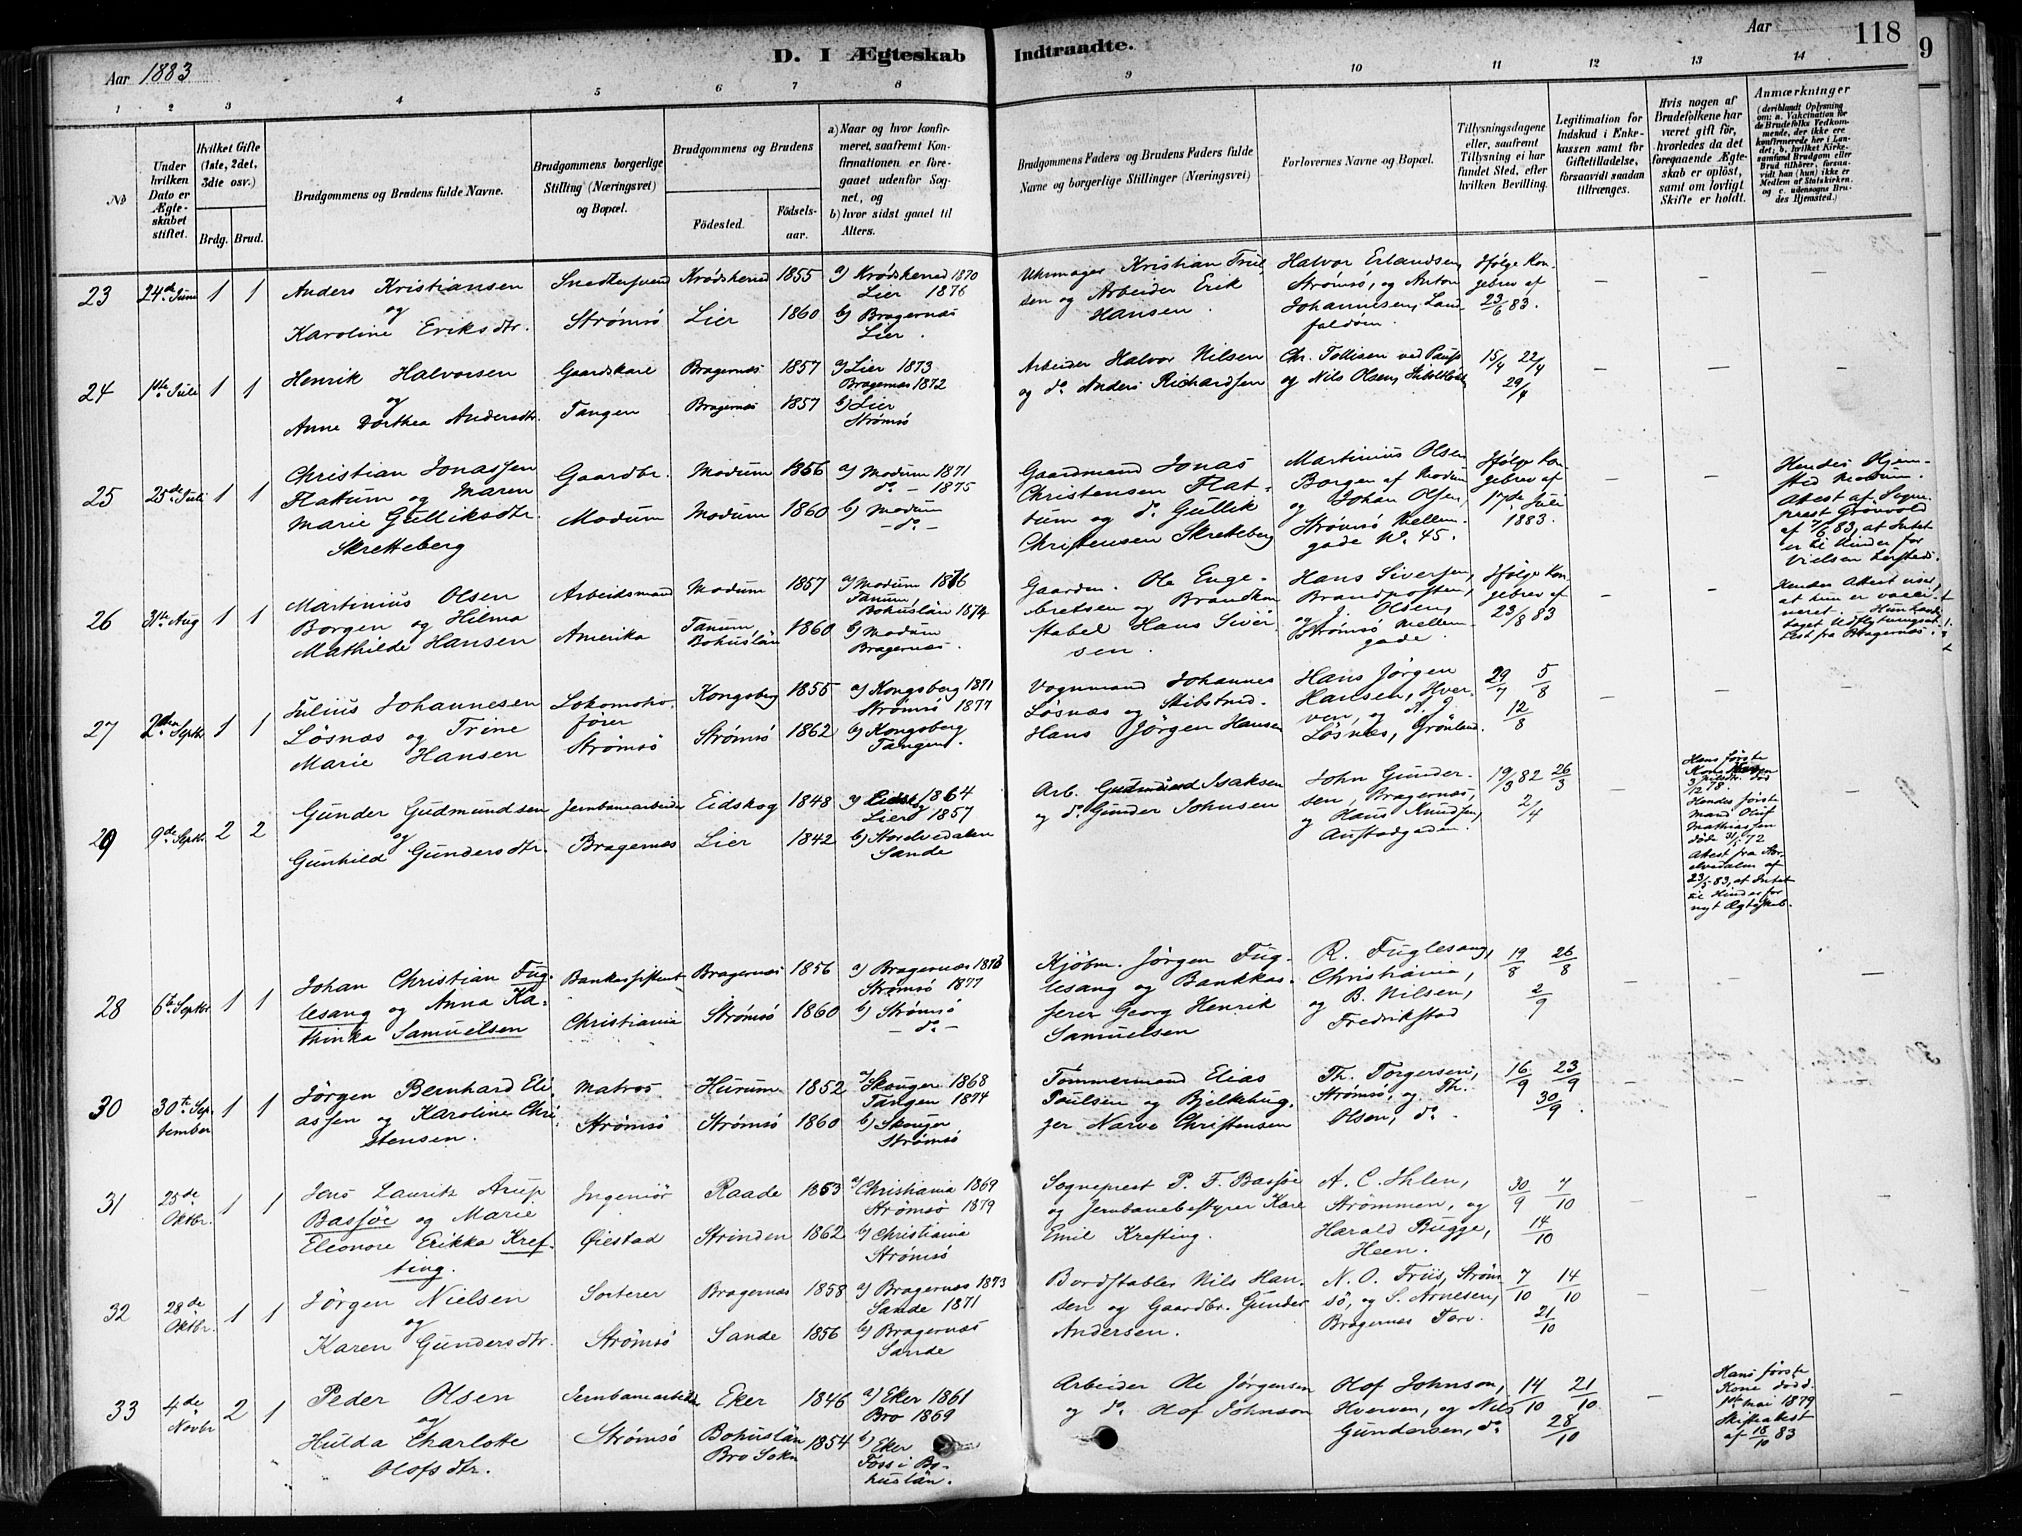 D. I Ægteskab Indtraadte.
Aar 1883
Aar
118
9
1 2 3 4 5 6 7 8 9 10 11 12 13 14
No
Under hvilken Dato er Ægteskabet stiftet.
Hvilket Gifte (1ste, 2det, 3die osv.)
Brdg. Brud.
Brudgommens og Brudens fulde Navne.
Brudgommens borgerlige Stilling (Næringsvei) og Bopæl.
Brudgommens og Brudens
Födested.
Födsels-aar.
a) Naar og hvor konfirmeret, saafremt Konfirmationen er foregaaet udenfor Sognet, og
b) hvor sidst gaaet til Alters.
Brudgommens Faders og Brudens Faders fulde Navne og borgerlige Stillinger (Næringsvei)
Forlovernes Navne og Bopæl.
Tillysningsdagene eller, saafremt Tillysning ei har fundet Sted, efter hvilken Bevilling.
Legitimation for Indskud i Enkekassen samt for Giftetilladelse, forsaavidt saadan tiltrænges.
Hvis nogen af Brudefolkene har været gift för, hvorledes da det foregaaende Ægteskab er oplöst, samt om lovligt Skifte er holdt.
Anmærkninger
(deriblandt Oplysning om: a. Vakcination for de Brudefolks Vedkommende, der ikke ere konfirmerede her i Landet; b. hvilket Kirkesamfund Brudgom eller Brud tilhörer, forsaavidt han (hun) ikke er Medlem af Statskirken, og c. udensogns Brudes Hjemsted.)
23 24de Juni 1 1
Anders Kristiansen
og
Karoline Eriksdtr.
Snedkersvend
Strømsø
Krødsherred 1855
Lier 1860
a) Krødsherred 1870
Lier 1876
b) Bragernæs
Lier.
Uhrmager Kristian Trulsen og Arbeider Erik Hansen.
Halvor Erlandsen, Strømsø, og Anton Johannesen, Landfaldøen.
Ifølge Kongebrev af 23/6 83.
24 1ste Juli 1 1
Henrik Halvorsen
og
Anne Dorthea Andersdtr.
Gaardskarl
Tangen
Bragernæs 1857
Bragernæs 1857
a) Lier 1873.
Bragernæs 1872
b) Lier
Strømsø
Arbeider Halvor Nilsen
og do. Anders Richardsen
Chr. Tollisen ved Pauss
og Nils Olsen,
15/4 22/4
29/4
25 25de Juli 1 1
Christian Jonassen
Flattum og Maren
Marie Gulliksdtr.
Skretteberg
Gaardbr.
Modum
Modum 1856
Modum 1860
a) Modum 1871
do. - 1875
b) Modum
- do -
Gaardmand Jonas
Christensen Flattum og do. Gullik
Christensen Skretteberg
Martinius Olsen
Borgen af Modum
og Johan Olsen,
Strømsø Mellemgade No. 45.
Ifølge Kongebrev af
17de Juli
1883.
Hendes Hjemsted Modum.
Attest af Sogneprest Grönvold
af 7/6 83, at Intet
er til Hinder for
Vielsen
26 31te Aug 1 1
Martinius Olsen
Borgen og Hilma
Mathilde Hansen
Arbeidsmand
Amerika
Modum 1857
Tanum, Bohuslän 1860
a) Modum 1876
Tanum, Bohuslän 1874
b) Modum
Bragernæs.
Gaardm. Ole Engebretsen og Brandkonstabel Hans Siversen.
Hans Siversen,
Brandposten,
og J. Olsen,
Strømsø Mellemgade
Ifølge Kongebrev af
23/8 83
Hendes Attest viser,
at hun er vaccineret. - Hun har taget Udflytningsattest fra Bragernæs.
27 2den Septbr. 1 1
Julius Johannesen
Løsnæs og Trine
Marie Hansen
Lokomotivfører
Strømsø
Kongsberg 1855
Strømsø 1862
a) Kongsberg 1871
Strømsø 1877
b) Kongsberg
Tangen.
Vognmand Johannes
Løsnæs og Skibstmd.
Hans Jørgen Hansen
Hans Jørgen
Hansen, Hverven, og A. J.
Løsnæs, Grønland.
29/7 5/8
12/8
29 9de Septbr. 2 2
Gunder Gudmundsen
og
Gunhild Gundersdtr.
Jernbanearbeider
Bragernæs
Eidskog 1848
Lier 1842
a) Eidskog 1864
Lier 1857
b) Storelvedalen
Sande
Arb. Gudmund Isaksen
og do. Gunder Johnsen
John Gundersen, Bragernæs
og Hans Knudsen,
Austadgaden.
19/3 82 26/3
2/4
Hans første
Kone
død
3/12 78.
Hendes første
Mand Oluf
Mathiassen
døde 31/1 72
Attest fra Storelvedalen af
23/5 83, at Intet
til Hinder for
nyt Ægteskab.
28 6te Septbr. 1 1
Johan Christian Fuglesang og Anna Kathinka Samuelsen
Bankassistent
Christiania
Bragernæs 1856
Strømsø 1860
a) Bragernæs 1873
Strømsø 1877
b) Strømsø
- do. -
Kjøbm. Jørgen Fuglesang og Bankkasserer Georg Henrik
Samuelsen
R. Fuglesang,
Christiania,
og B. Nilsen,
Fredrikstad
19/8 26/8
2/9
30 30te September 1 1
Jørgen Bernhard Eliassen og Karoline Christensen.
Matros
Strømsø
Hurum 1852
Strømsø 1860
a) Skouger 1868
Tangen 1874
b) Skouger
Strømsø
Tømmermand Elias
Poulsen og Bjelkehugger Narve Christensen
Th. Torgersen,
Strømsø, og Th.
Olsen, do.
16/9 23/9
30/9
31 25de Oktbr. 1 1
Jens Lauritz Arup
Bassøe og Marie
Eleonore Erikka Krefting.
Ingeniør
Øiestad
Raade 1853
Strinden 1862
a) Christiania 1869
Strømsø 1879
b) Christiania
Strømsø
Sogneprest P. F. Bassøe
og Jernbanebestyrer Kare
Emil Krefting.
A. C. Ihlen,
Strømmen, og
Harald Bugge,
Heen.
30/9 7/10
14/10
32 28de Oktbr. 1 1
Jørgen Nielsen
og
Karen Gundersdtr.
Sorterer
Strømsø
Bragernæs 1858
Sande 1856
a) Bragernæs 1873
Sande 1871
b) Bragernæs
Sande
Bordstabler Nils Hansen og Gaardbr. Gunder
Andersen.
N. O. Friis, Strømsø, og S. Arnesen,
Bragernæs Torv.
7/10 14/10
21/10
33 4de Novbr 2 1
Peder Olsen
og
Hulda Charlotte
Olofsdtr.
Jernbanearbeider
Strømsø
Eker 1846
Bohuslän
Bro Sokn 1854
a) Eker 1861
Bro 1869
b) Eker
Foss i Bohuslän.
Arbeider Ole Jørgensen
og do. Olof Johnson
Olof Johnson,
Hverven, og Nils
Gundersen, do.
14/10 21/10
28/10
Hans første
Kone død d.
1ste Mai 1879
Skifteattest
af 18/10 83